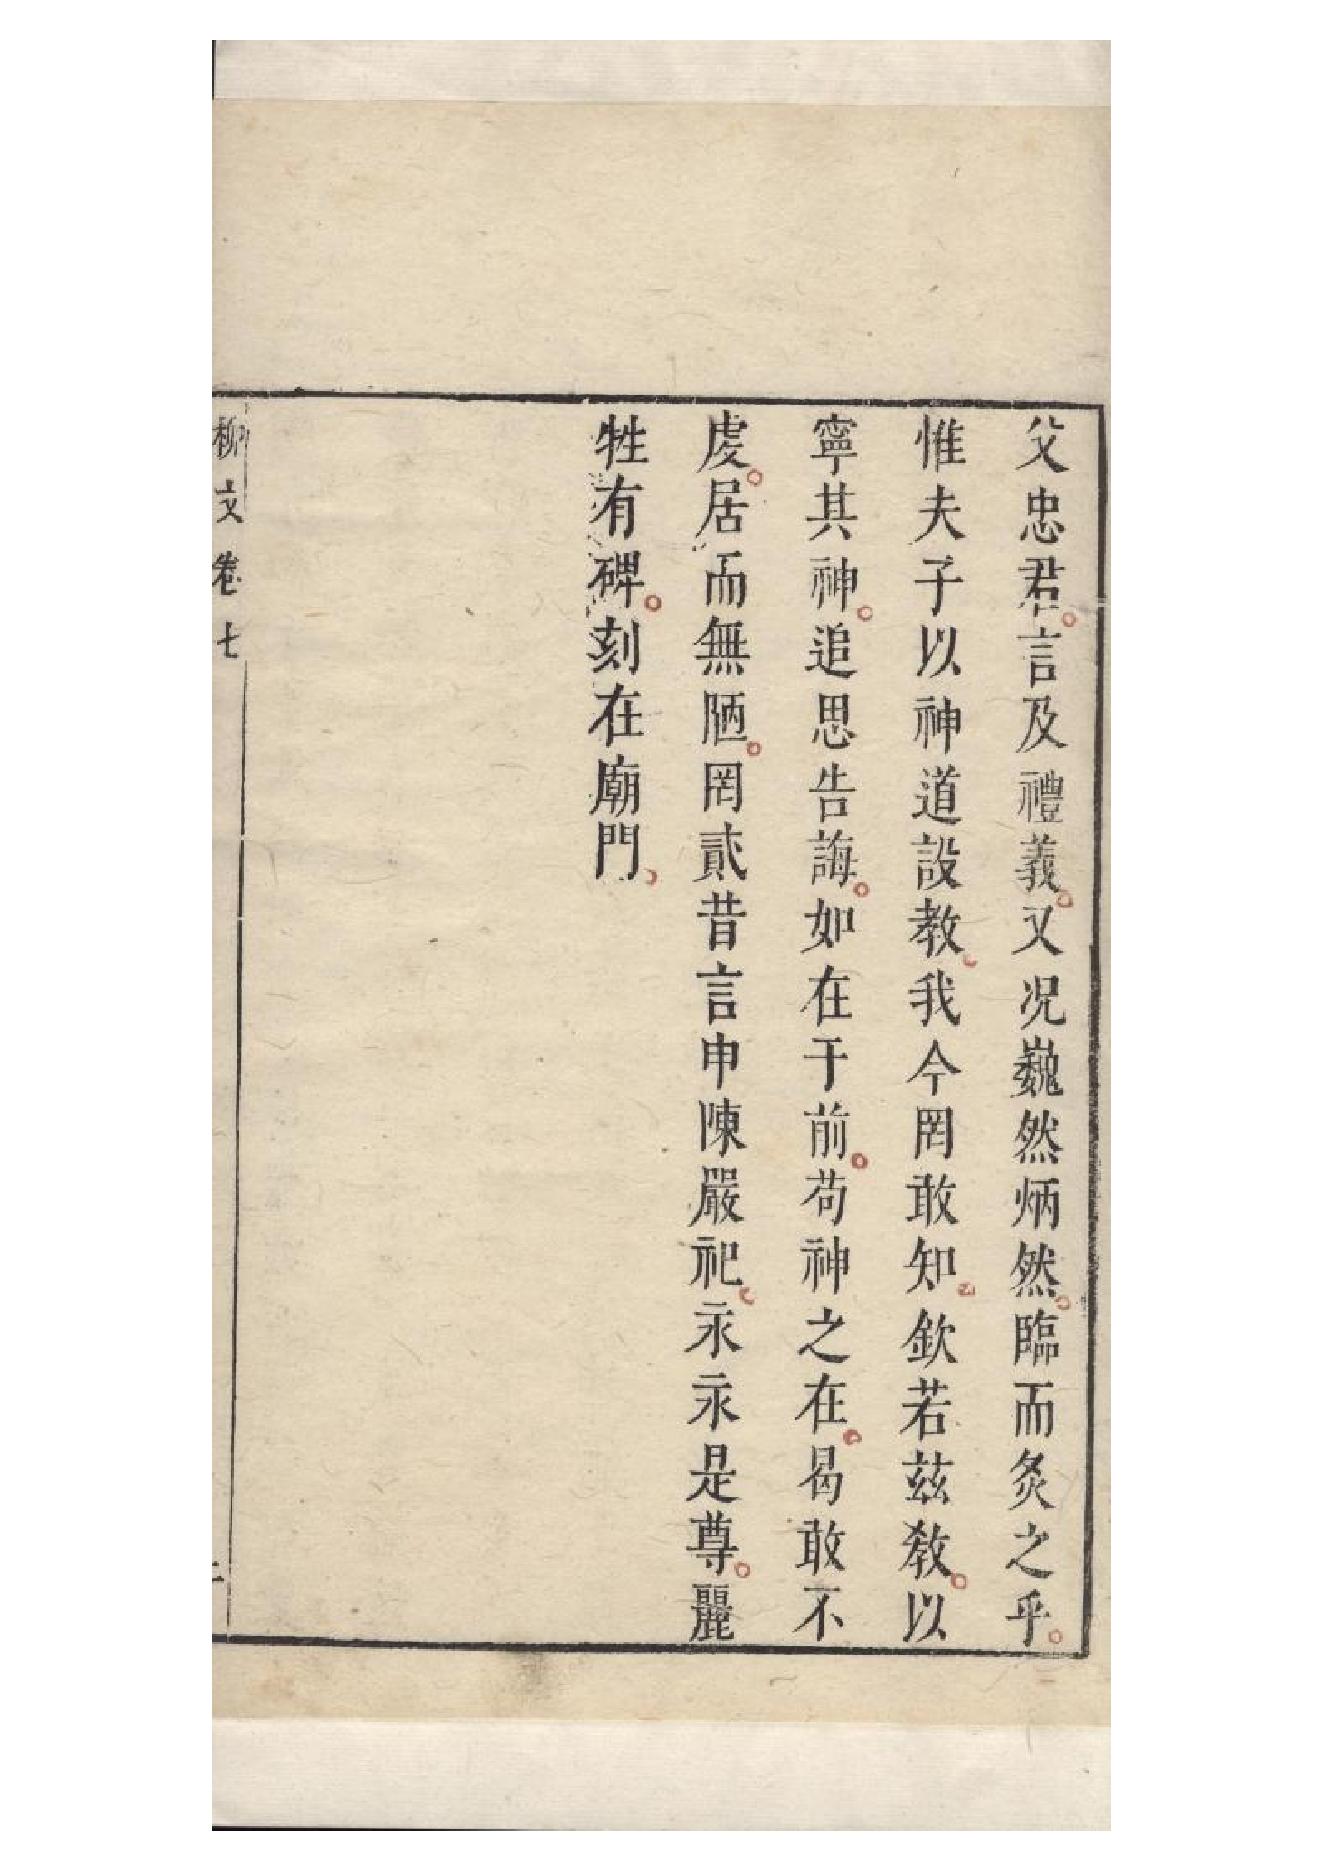 父忠君言及禮義又况巍然炳然臨而炙之乎
惟夫子以神道設教我今罔敢知欽若兹教以
寧其神追思告誨如在于前苟神之在曷敢不
虔居而無陋罔貳昔言申陳嚴祀永永是尊麗
牲有碑刻在廟門
柳文卷七
二